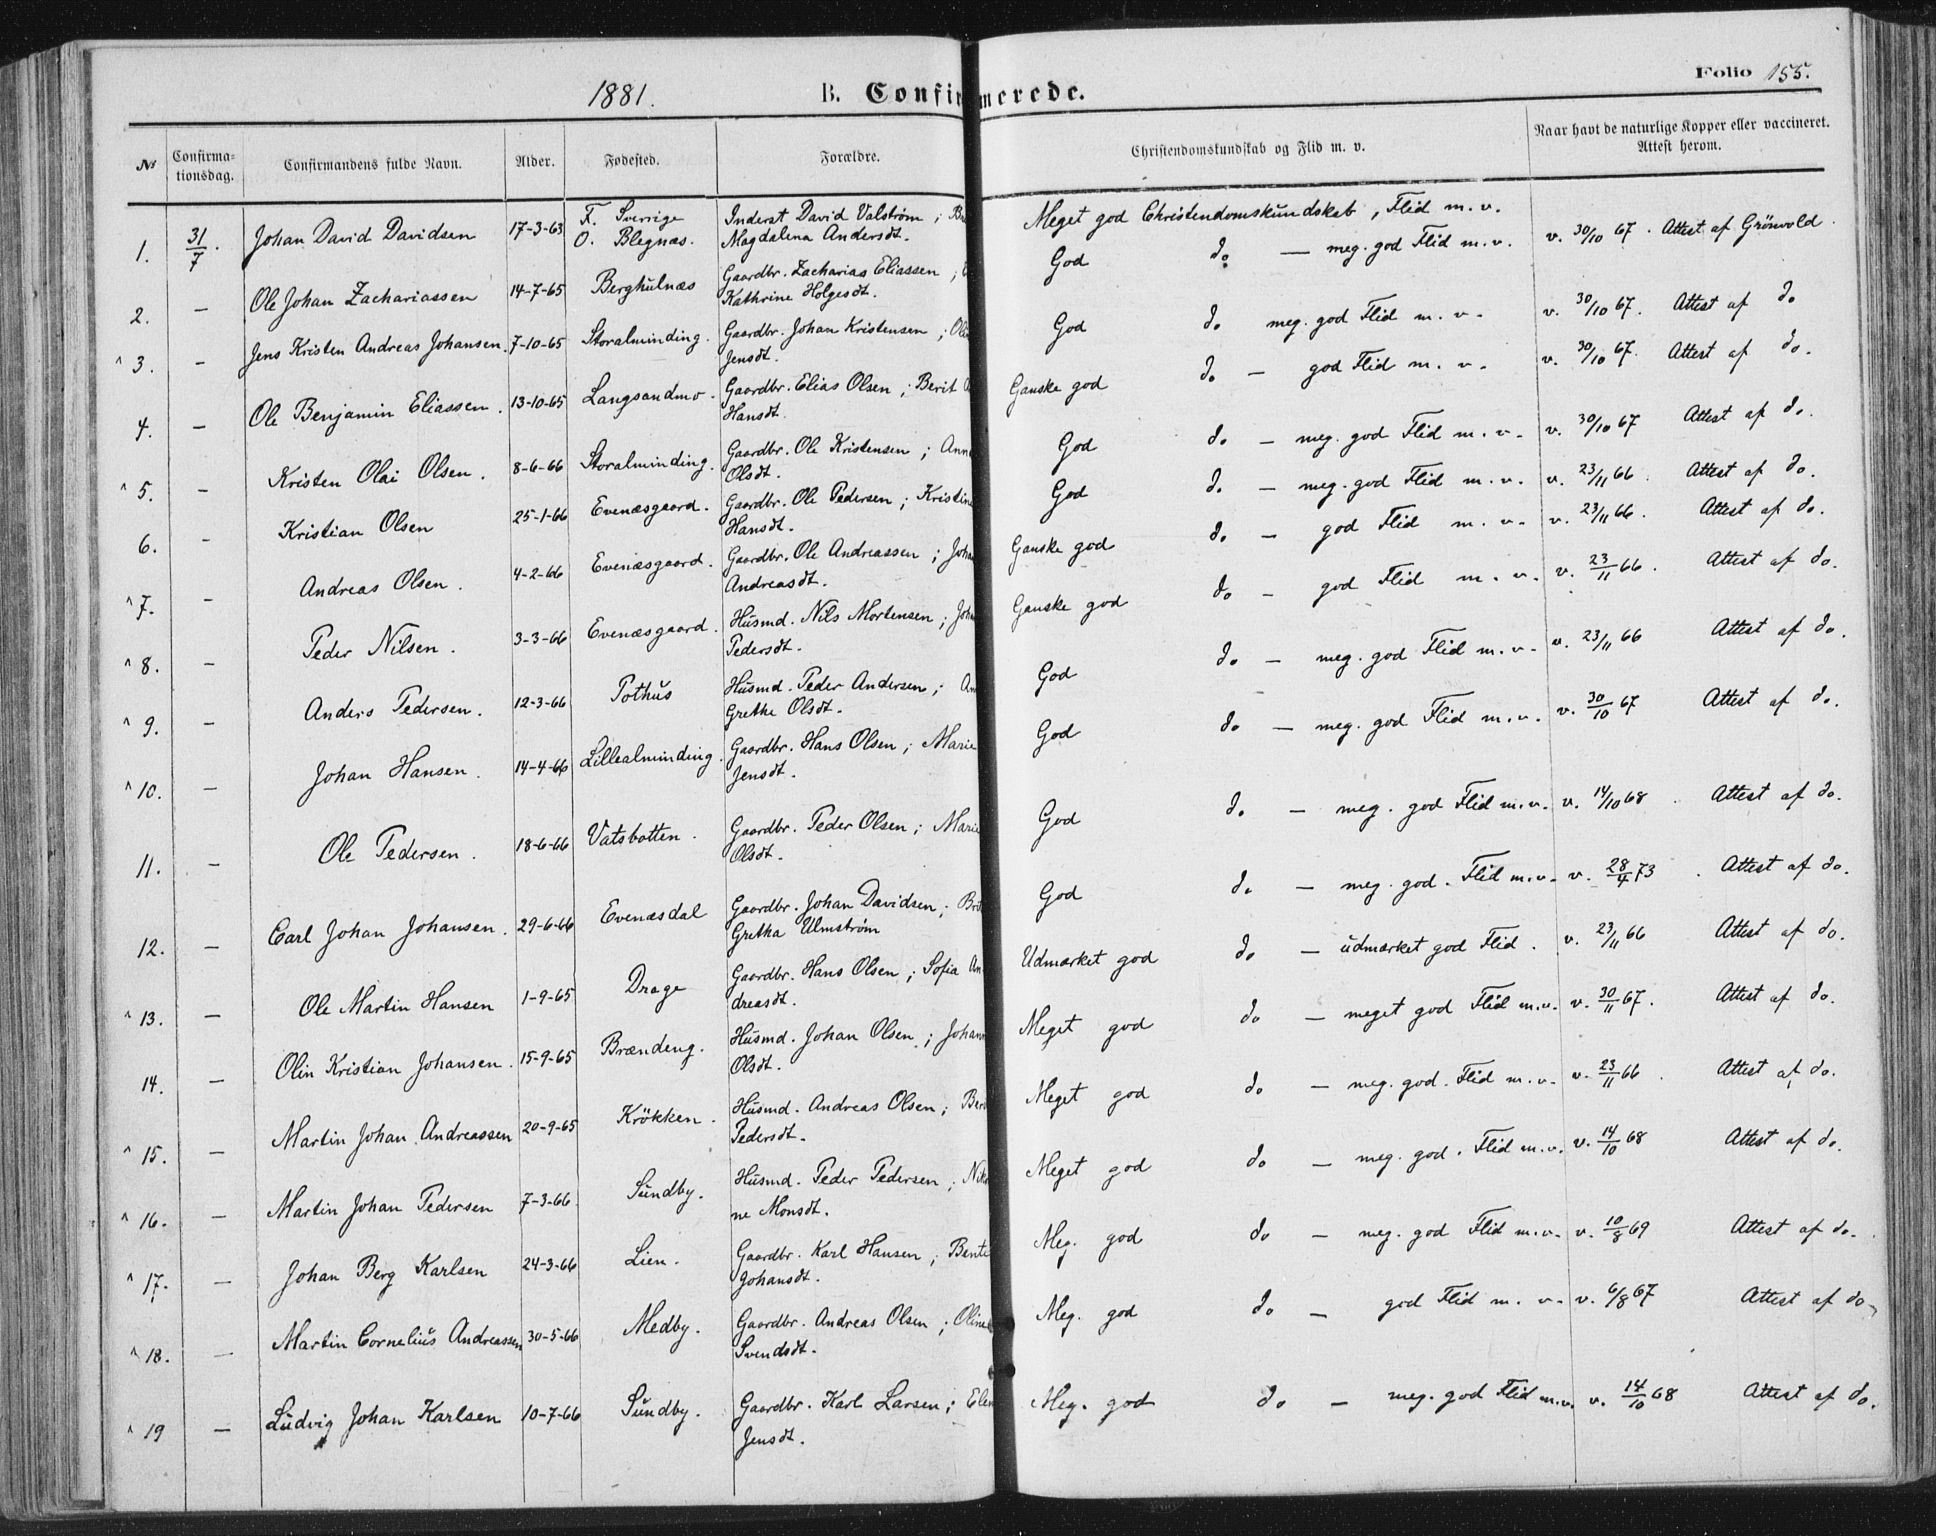 1881.
B. Confirmerede.
Folio 155.
No
Confirma-
tionsdag.
Confirmandens fulde Navn.
Alder.
Fødested.
Forældre.
Christendomskundskab og Flid m. v.
Naar havt de naturlige Kopper eller vaccineret.
Attest herom.
1. 31/7. Johan David Davidsen 17-3-63 F. Sverrige Inderst David Valström;
O. Blegnæs. Magdalena Andersdt.
Meget god Christendomskundskab, Flid m. v.
God do — meg. god Flid m. v. v. 30/10 67. Attest af Grönvold
2. — Ole Johan Zachariassen 14-7-65 Berghulnæs Gaardbr. Zacharias Eliassen;
Kathrine Holgesdt.
God do meg. god Flid m. v. v. 30/10 67. Attest af do
^ 3. — Jens Kristen Andreas Johansen. 7-10-65 Storalminding. Gaardbr. Johan Kristensen;
Jensdt.
Ganske god do — god Flid m. v. v. 30/10 67. Attest af do.
4. — Ole Benjamin Eliassen. 13-10-65 Langsandmo. Gaardbr. Elias Olsen; Berit
Hansdt.
God do — meg. god Flid m. v. v. 30/10 67 Attest af do.
^ 5. — Kristen Olai Olsen. 8-6-66 Storalminding. Gaardbr. Ole Kristensen; Ann
Olsdt.
God do. — meg. god Flid m. v. v. 23/11 66. Attest af do.
6. — Kristian Olsen 25-1-66 Evenæsgaard. Gaardbr. Ole Pedersen; Kristine
Hansdt.
Ganske god do — god Flid m. v. v. 23/11 66. Attest af do.
^ 7. — Andreas Olsen. 4-2-66 Evenæsgaard. Gaardbr. Ole Andreassen; Joha
Andreasdt.
Ganske god do — god Flid m. v. v. 23/11 66. Attest af do.
^ 8. — Peder Nilsen. 3-3-66 Evenæsgaard. Husmd. Nils Mortensen; Joha
Pedersdt.
God do — meg. god Flid m. v. v. 23/11 66 Attest af do.
^ 9. — Anders Pedersen. 12-3-66 Pothus Husmd. Peder Andersen; An
Grethe Olsdt.
God do — meg. god Flid m. v. v. 30/10 67 Attest af do.
^ 10. — Johan Hansen. 14-4-66 Lillealminding. Gaardbr. Hans Olsen; Marie
Jensdt.
God do. — meg. god Flid m. v. v. 14/10 68. Attest af do.
11. — Ole Pedersen. 18-6-66 Vatsbotten. Gaardbr. Peder Olsen; Marie
Olsdt.
God do. — meg. god. Flid m. v. v. 28/4 73. Attest af do.
12. — Carl Johan Johansen. 29-6-66 Evenæsdal Gaardbr. Johan Davidsen; Brit
Gretha Ulmström
Udmærket god do — udmærket god Flid. v. 23/11 66 Attest af do.
^ 13. — Ole Martin Hansen 1-9-65 Drage Gaardbr. Hans Olsen; Sofia An-
dreasdt.
Meget god do — meget god Flid m. v. v. 30/11 67. Attest af do.
14. — Olin Kristian Johansen. 15-9-65 Brændeng. Husmd. Johan Olsen; Johann
Olsdt.
Meget god do — meg. god. Flid m. v. v. 23/11 66. Attest af do.
^ 15. — Martin Johan Andreassen 20-9-65 Krökken. Husmd. Andreas Olsen; Ber
Pedersdt.
Meget god do — meg. god. Flid m. v. v. 14/10 68 Attest af do.
^ 16. — Martin Johan Pedersen 7-3-66. Sundby. Husmd. Peder Pedersen; Nik
ne Monsdt.
Meg. god do — meg. god Flid m. v. v. 10/8 69 Attest af do.
^ 17. — Johan Berg Karlsen 24-3-66 Lien. Gaardbr. Karl Hansen; Bente
Johansdt.
Meg. god do — god Flid m. v. v. 6/8 67 Attest af do.
^ 18. — Martin Cornelius Andreassen 30-5-66 Medby. Gaardbr. Andreas Olsen; Oline
Svendsdt.
Meg. god do — meg. god Flid m. v. v. 14/10 68 Attest af do.
^ 19 — Ludvig Johan Karlsen 10-7-66 Sundby. Gaardbr. Karl Larsen; Elen
Jensdt.